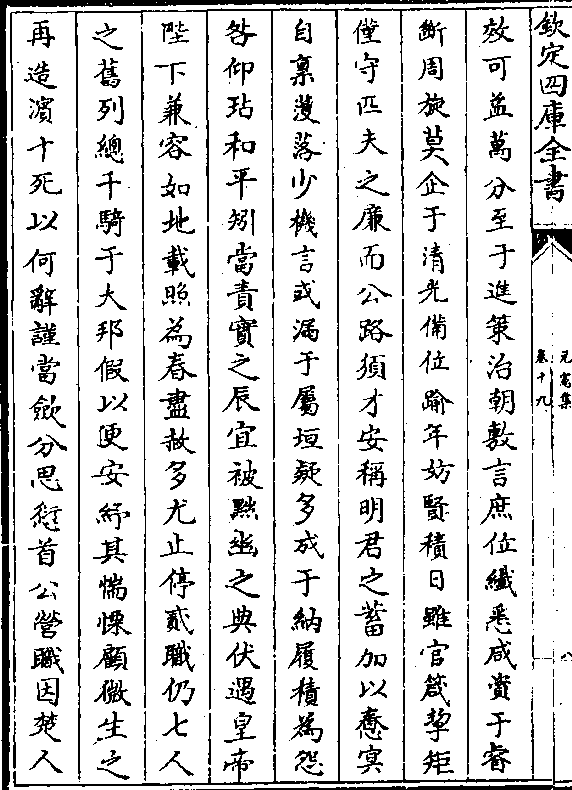 欽定四庫全書
元憲集
卷十九
八
效可益萬分至于進策治朝敷言庶位纖悉咸賫于睿
斷周旋莫企于清光備位踰年妨賢積日雖官箴挈矩
僅守匹夫之廉而公路須才安稱明君之蓄加以憃冥
自稟濩落少機言或漏于屬垣疑多成于納履積為怨
咎仰玷和平矧當責實之辰宜被黜幽之典伏遇皇帝
陛下兼容如地載照為春盡赦多尤止停貳職仍七人
之舊列總千騎于大邦假以便安紓其惴慄顧微生之
再造濱十死以何辭謹當斂分思愆首公營職因楚人